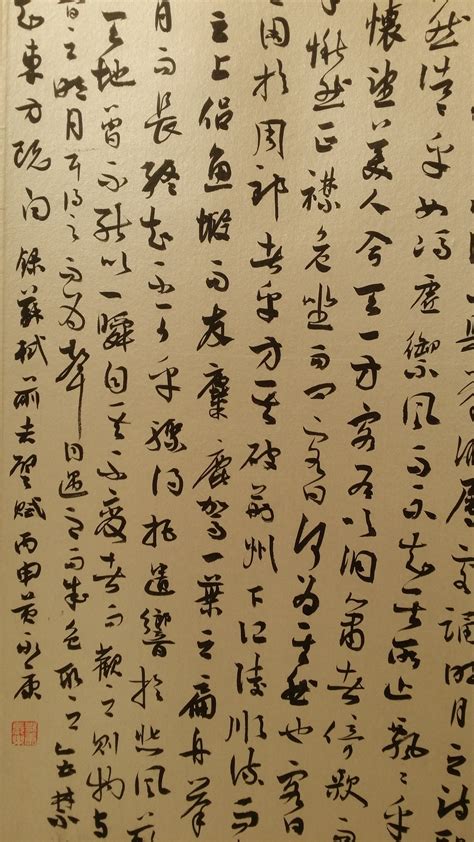 客誦明月之詩
然浩浩乎如馮虛御風而不知其所止飄飄乎
懷望美人兮天一方客有吹洞簫者倚歌而
愀然正襟危坐而問客曰何為其然也客曰
困於周郎者乎方其破荊州下江陵順流而
之上侶魚蝦而友麋鹿駕一葉之扁舟舉
月而長終知不可乎驟得托遺響於悲風
天地曾不能以一瞬自其不變者而觀之則物與
間之明月耳得之而為聲目遇之而成色取之無禁
知東方既白 錄蘇軾前赤壁賦 丙申黃永